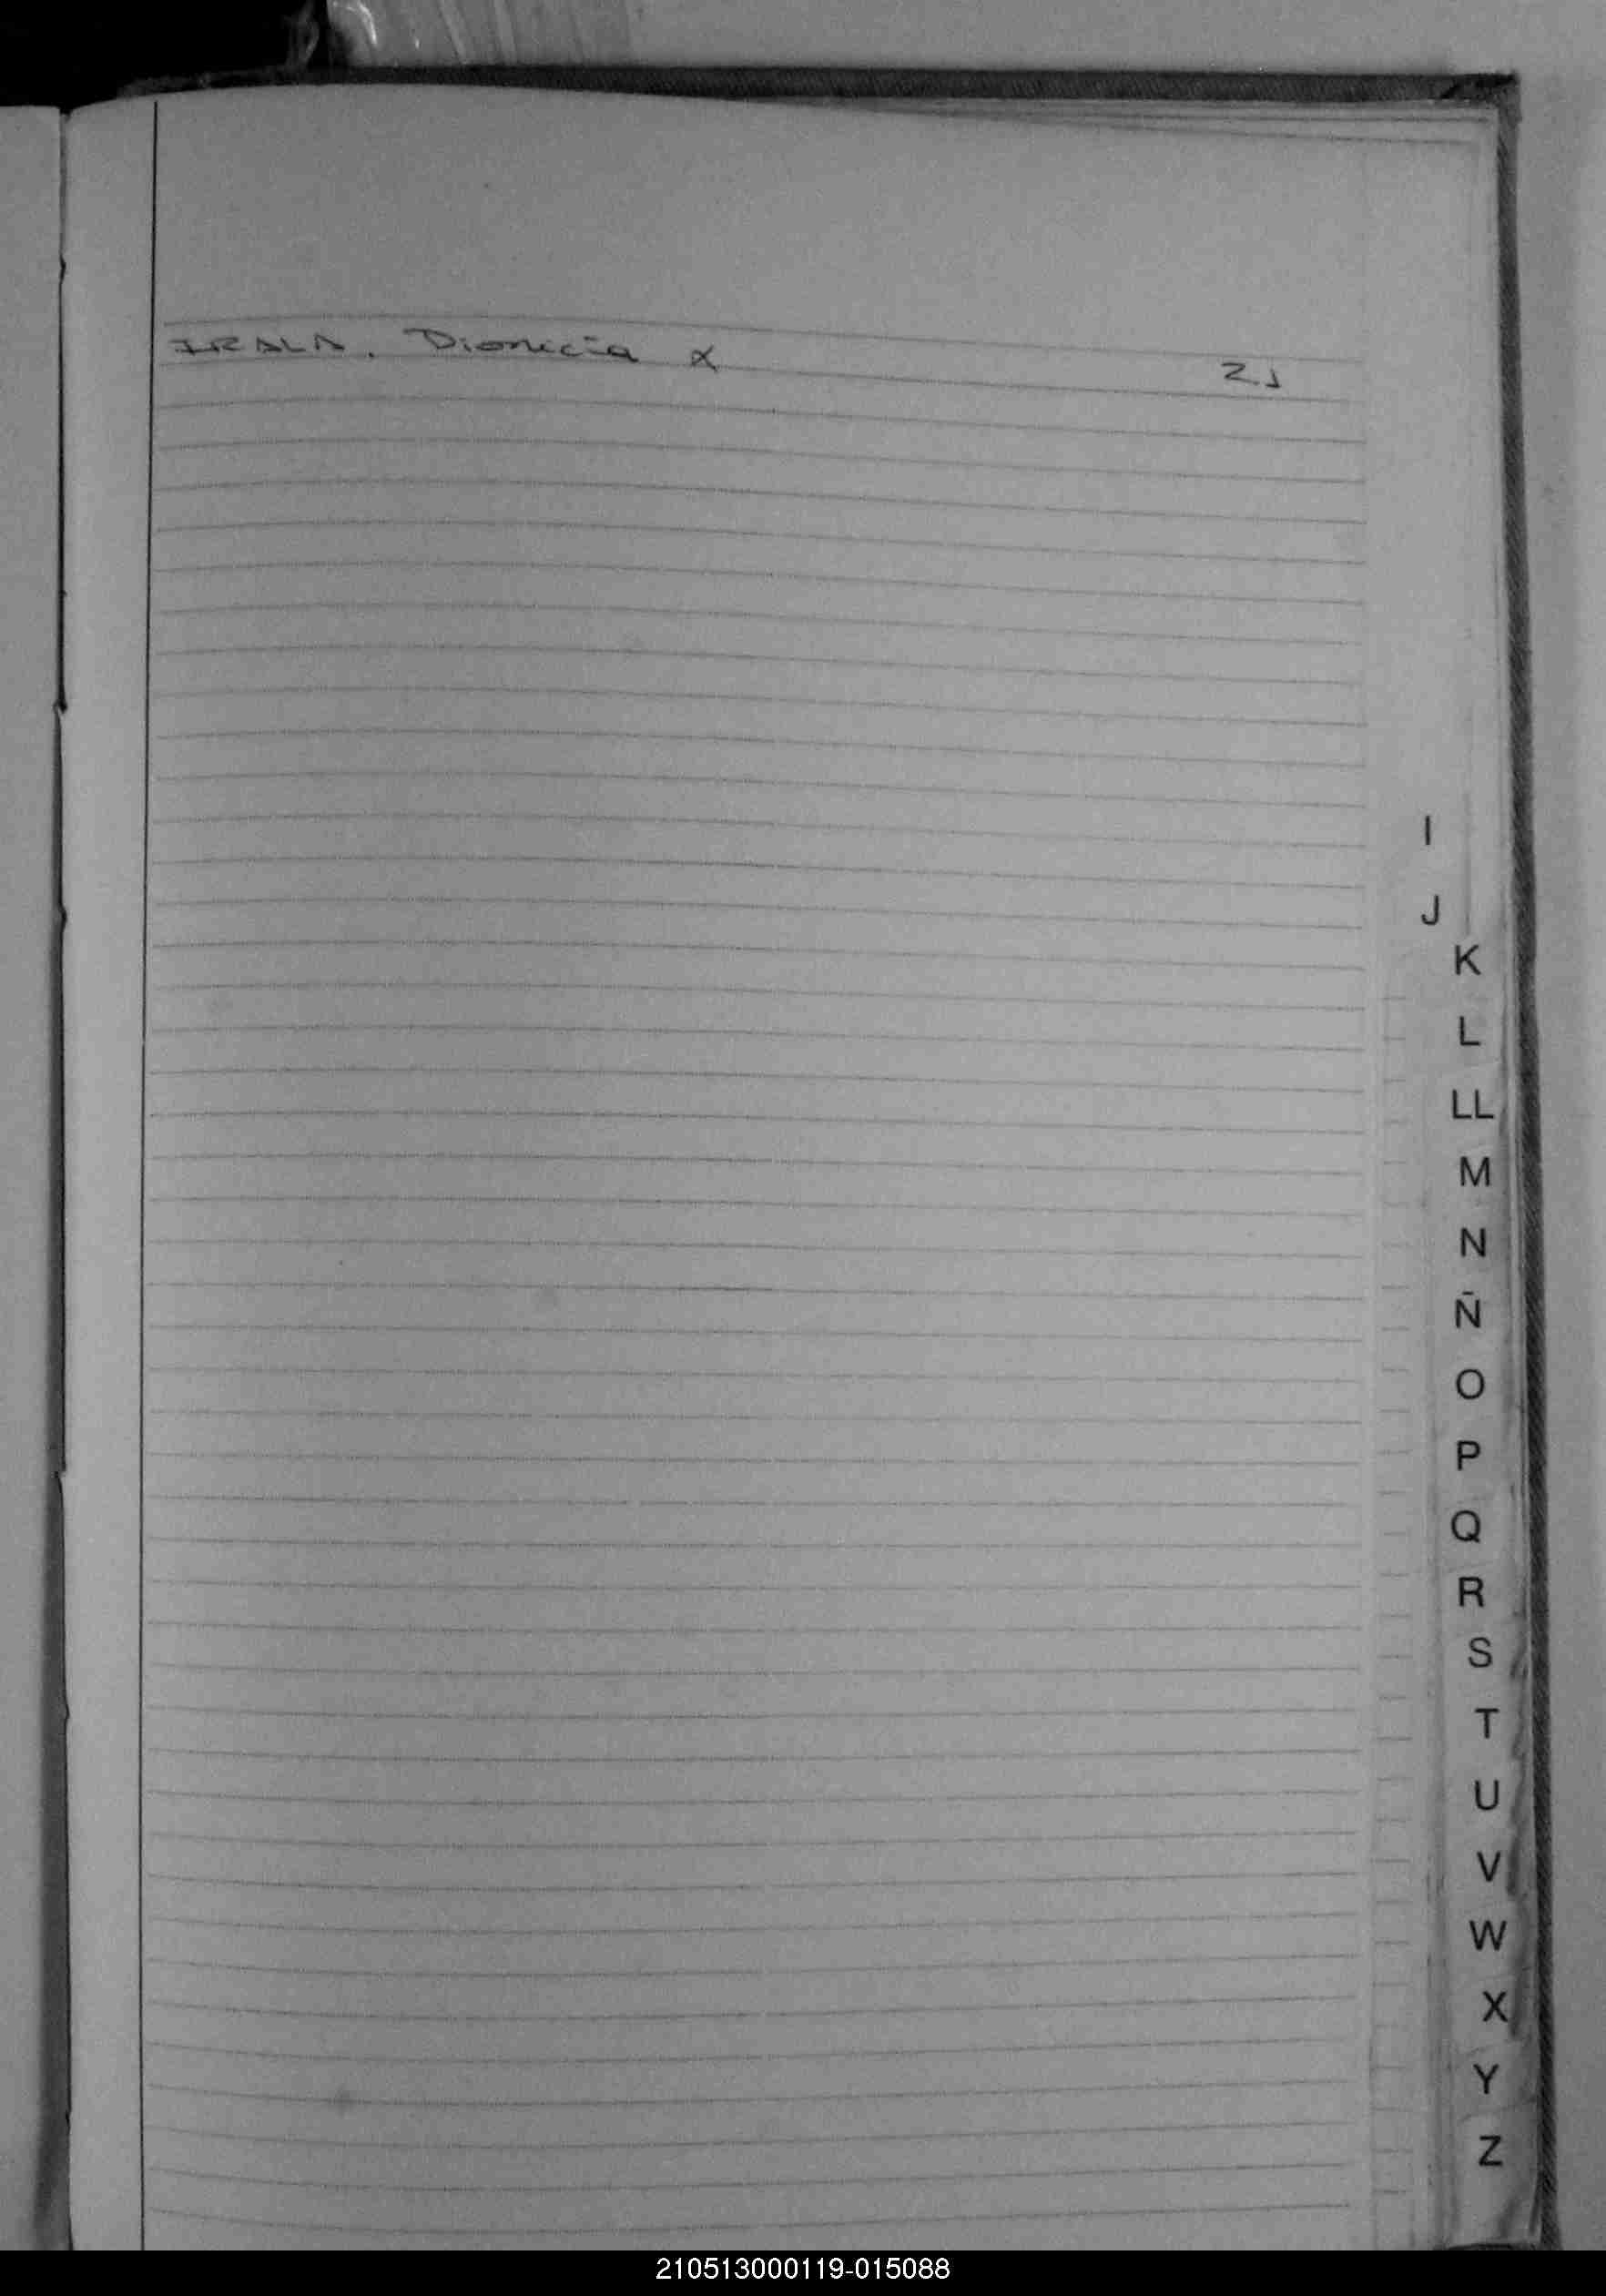 IRALA, Dionicia X 21
I
J
K
L
LL
M
N
Ñ
O
P
Q
R
S
T
U
V
W
X
Y
Z
210513000119-015088